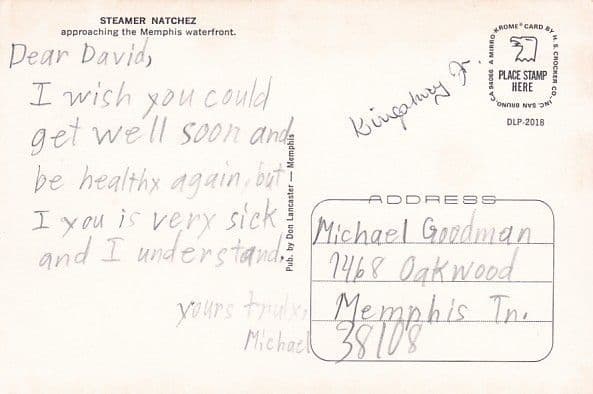 STEAMER NATCHEZ
approaching the Memphis waterfront.
Dear David,
I wish you could
get well soon and
be healthy again, but
I you is very sick
and I understand.
yours truly,
Michael
Pub. by Don Lancaster — Memphis
Kingsbury Jr.
A MIRRO-KROME® CARD BY H. S. CROCKER CO., INC. SAN BRUNO, CA 94066
PLACE STAMP
HERE
DLP-2018
ADDRESS
Michael Goodman
1468 Oakwood
Memphis Tn.
38108